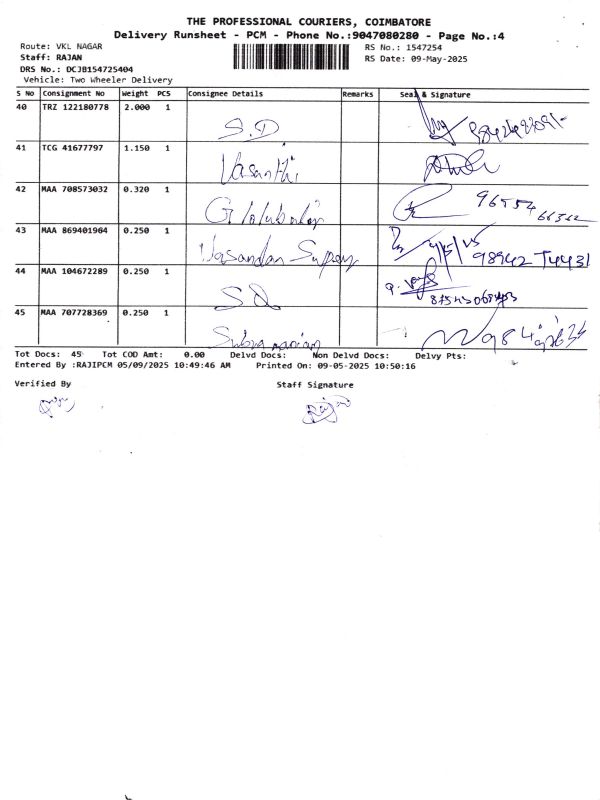 THE PROFESSIONAL COURIERS, COIMBATORE
Delivery Runsheet - PCM - Phone No.:9047080280 - Page No.:4
Route: VKL NAGAR RS No.: 1547254
Staff: RAJAN RS Date: 09-May-2025
DRS No.: DCJB154725404
Vehicle: Two Wheeler Delivery
S No Consignment No Weight PCS Consignee Details Remarks Seal & Signature
40 TRZ 122180778 2.000 1
S.D
41 TCG 41677797 1.150 1
Vasanthi
42 MAA 708573032 0.320 1
96554
43 MAA 869401964 0.250 1
Vasandan 98942 T4431
44 MAA 104672289 0.250 1
SD
45 MAA 707728369 0.250 1
Subramanian
Tot Docs: 45 Tot COD Amt: 0.00 Delvd Docs: Non Delvd Docs: Delvy Pts:
Entered By :RAJIPCM 05/09/2025 10:49:46 AM Printed On: 09-05-2025 10:50:16
Verified By Staff Signature